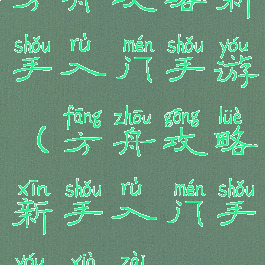 方舟攻略新
shǒu rù mén shǒu yóu
手入门手游
fāng zhōu gōng lüè
（方舟攻略
xīn shǒu rù mén shǒu
新手入门手
yóu xià zǎi